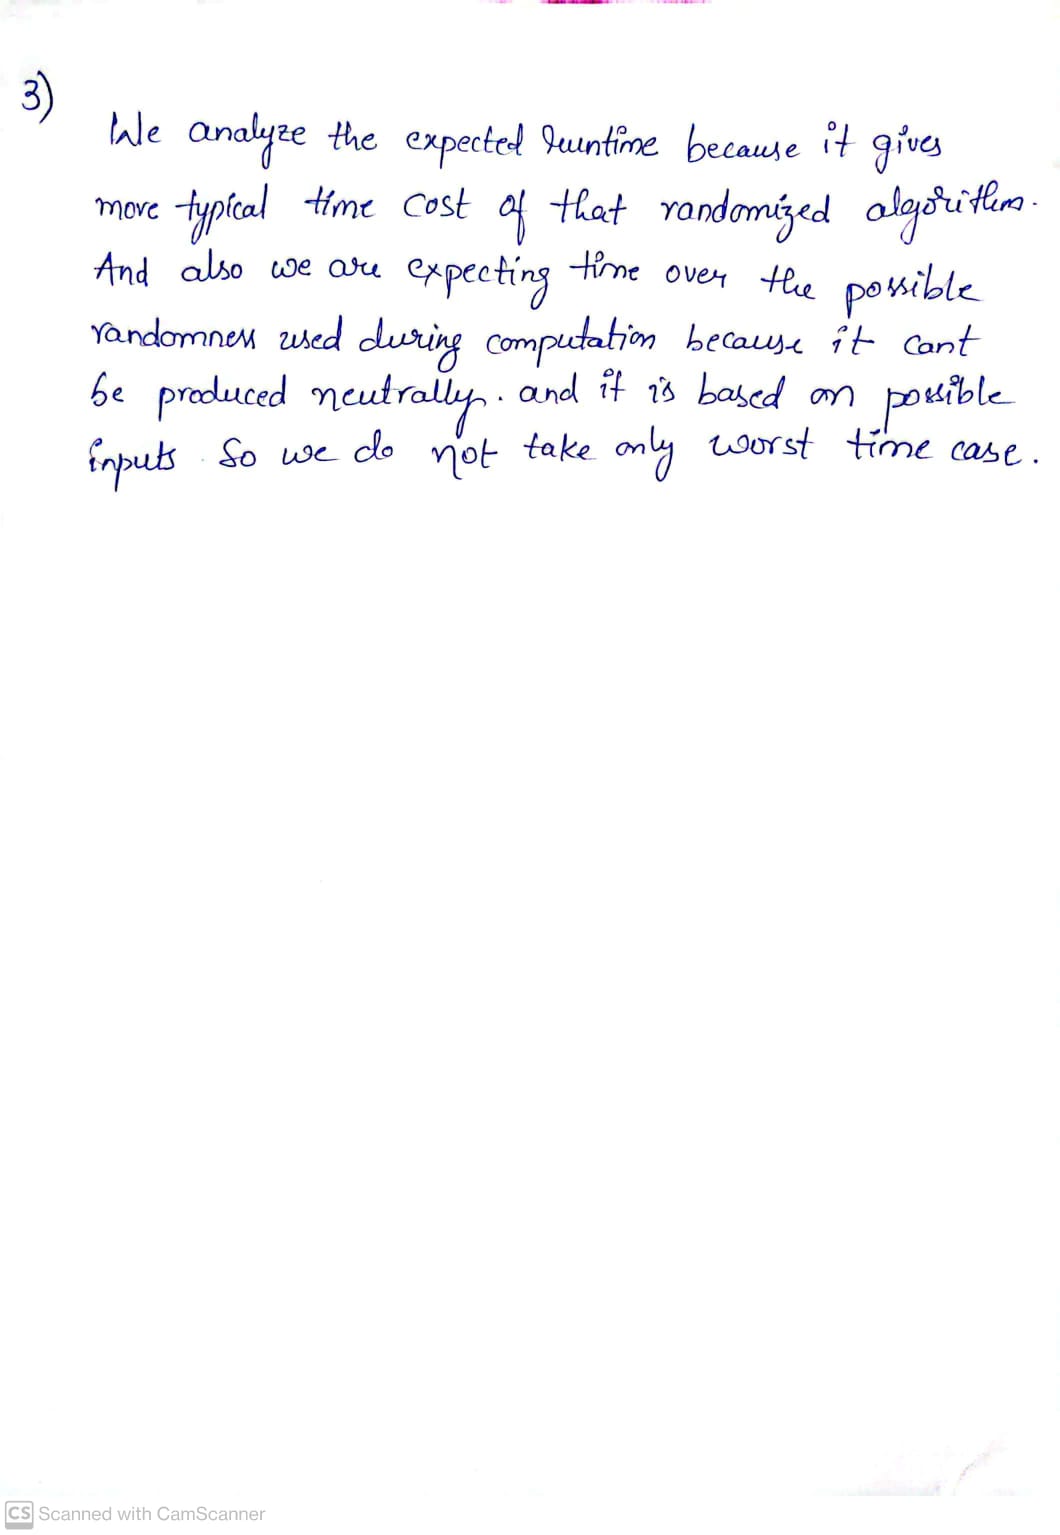 3)
We analyze the expected Runtime because it gives
more typical time cost of that randomized algorithm.
And also we are expecting time over the possible
randomness used during computation because it cant
be produced neutrally. and it is based on possible
inputs. So we do not take only worst time case.
CS Scanned with CamScanner